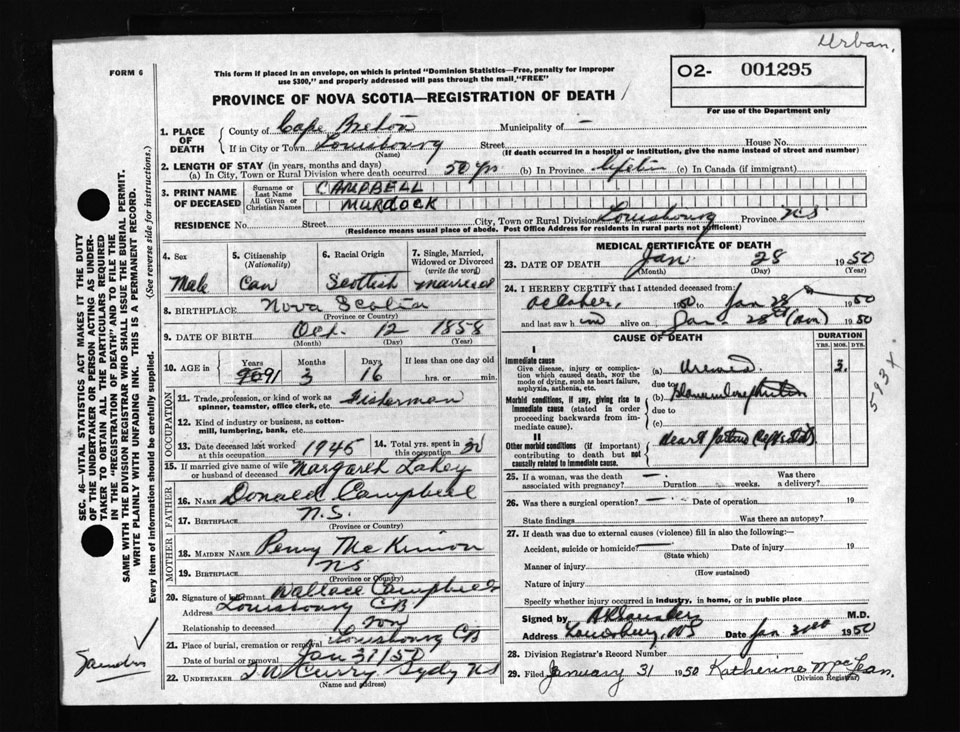 Urban,
FORM 6
This form if placed in an envelope, on which is printed "Dominion Statistics—Free, penalty for improper
use $300," and properly addressed will pass through the mail "FREE"
O2- 001295
PROVINCE OF NOVA SCOTIA—REGISTRATION OF DEATH
For use of the Department only
1. PLACE OF DEATH
County of Cape Breton Municipality of —
If in City or Town Louisbourg Street House No.
(Name) (If death occurred in a hospital or institution, give the name instead of street and number)
2. LENGTH OF STAY (in years, months and days)
(a) In City, Town or Rural Division where death occurred 50 yrs (b) In Province lifetime (c) In Canada (if immigrant)
3. PRINT NAME OF DECEASED
Surname or Last Name CAMPBELL
All Given or Christian Names MURDOCK
RESIDENCE No. Street City, Town or Rural Division Louisbourg Province N.S
(Residence means usual place of abode. Post Office Address for residents in rural parts not sufficient)
4. Sex Male
5. Citizenship (Nationality) Can
6. Racial Origin Scottish
7. Single, Married, Widowed or Divorced (write the word) married
8. BIRTHPLACE Nova Scotia
(Province or Country)
9. DATE OF BIRTH Oct. 12 1858
(Month) (Day) (Year)
10. AGE in Years Months Days If less than one day old
91 3 16 hrs. or min.
OCCUPATION
11. Trade, profession, or kind of work as
spinner, teamster, office clerk, etc. Fisherman
12. Kind of industry or business, as cotton-
mill, lumbering, bank, etc.
13. Date deceased last worked at this occupation 1945
14. Total yrs. spent in this occupation 30
15. If married give name of wife or husband of deceased Margaret Lahey
FATHER
16. NAME Donald Campbell
17. BIRTHPLACE N.S.
(Province or Country)
MOTHER
18. MAIDEN NAME Penny McKinnon
19. BIRTHPLACE NS
(Province or Country)
20. Signature of informant Wallace Campbell
Address Louisbourg CB
Relationship to deceased son
21. Place of burial, cremation or removal Louisbourg CB
Date of burial or removal Jan 31/50
22. UNDERTAKER T W Curry Sydy NS
(Name and address)
MEDICAL CERTIFICATE OF DEATH
23. DATE OF DEATH Jan. 28 1950
(Month) (Day) (Year)
24. I HEREBY CERTIFY that I attended deceased from
October, to Jan 28 1950
and last saw him alive on Jan. 28th 1950
CAUSE OF DEATH
DURATION
YRS. MOS. DYS.
I
Immediate cause
Give disease, injury or complica-
tion which caused death, not the
mode of dying, such as heart failure,
asphyxia, asthenia, etc.
(a) Uremia 3.
due to
Morbid conditions, if any, giving rise to
immediate cause (stated in order
proceeding backwards from im-
mediate cause).
(b)
due to
(c)
II
Other morbid conditions (if important)
contributing to death but not
causally related to immediate cause.
593 X.
25. If a woman, was the death
associated with pregnancy? — Duration weeks. Was there
a delivery?
26. Was there a surgical operation? — Date of operation 19
State findings Was there an autopsy?
27. If death was due to external causes (violence) fill in also the following:—
Accident, suicide or homicide? — Date of injury 19
(State which)
Manner of injury
(How sustained)
Nature of injury
Specify whether injury occurred in industry, in home, or in public place
Signed by M.D.
Address Louisburg, NS Date Jan 1950
28. Division Registrar's Record Number
29. Filed January 31 1950 Katherine MacLean.
(Division Registrar)
SEC. 46—VITAL STATISTICS ACT MAKES IT THE DUTY
OF THE UNDERTAKER OR PERSON ACTING AS UNDER-
TAKER TO OBTAIN ALL THE PARTICULARS REQUIRED
IN THE "REGISTRATION OF DEATH" AND TO FILE THE
SAME WITH THE DIVISION REGISTRAR WHO SHALL ISSUE THE BURIAL PERMIT.
WRITE PLAINLY WITH UNFADING INK. THIS IS A PERMANENT RECORD.
Every item of information should be carefully supplied. (See reverse side for instructions.)
Saunders